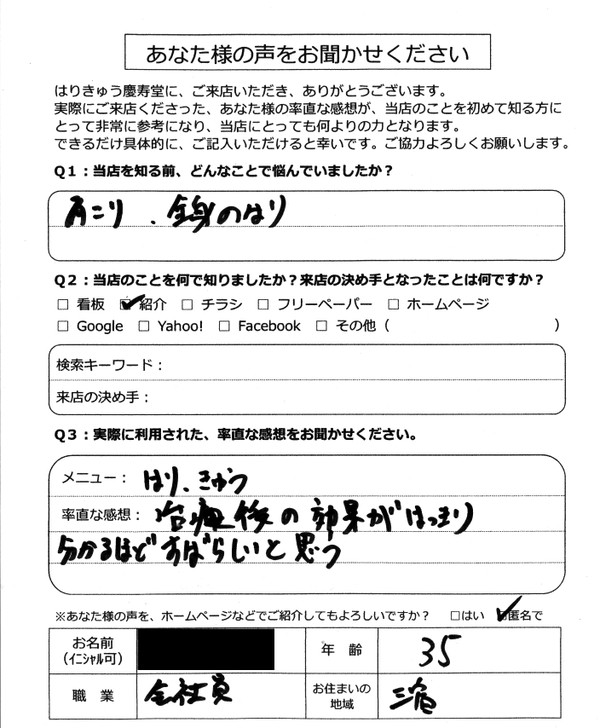 あなた様の声をお聞かせください
はりきゅう慶寿堂に、ご来店いただき、ありがとうございます。
実際にご来店くださった、あなた様の率直な感想が、当店のことを初めて知る方に
とって非常に参考になり、当店にとっても何よりの力となります。
できるだけ具体的に、ご記入いただけると幸いです。ご協力よろしくお願いします。
Q1：当店を知る前、どんなことで悩んでいましたか？
肩こり、全身のはり
Q2：当店のことを何で知りましたか？来店の決め手となったことは何ですか？
□ 看板 ☑ 紹介 □ チラシ □ フリーペーパー □ ホームページ
□ Google □ Yahoo! □ Facebook □ その他（ ）
検索キーワード：
来店の決め手：
Q3：実際に利用された、率直な感想をお聞かせください。
メニュー： はり、きゅう
率直な感想： 治療後の効果がはっきり
分かるほどすばらしいと思う
※あなた様の声を、ホームページなどでご紹介してもよろしいですか？ □はい ☑匿名で
お名前
（ｲﾆｼｬﾙ可）
年 齢 35
職 業 会社員
お住まいの
地域